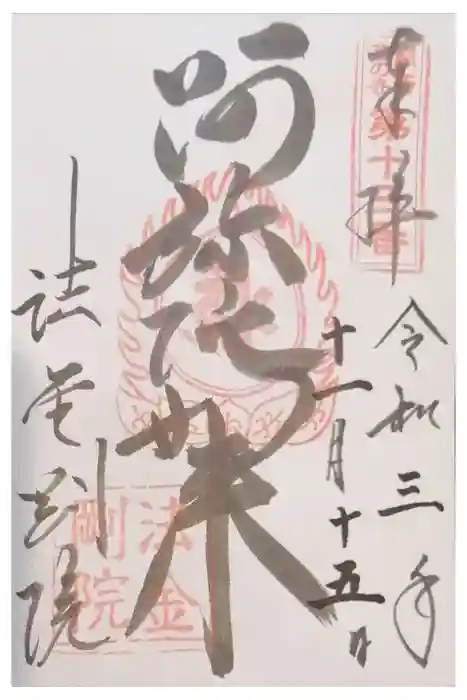 奉拝
第十三番
令和三年
十一月十五日
阿弥陀如来
法金剛院
法金
剛院